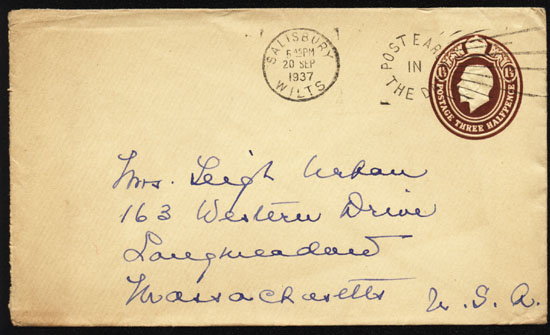 SALISBURY
6.15PM
20 SEP
1937
WILTS
POST EAR
IN
THE D
1½ 1½
POSTAGE THREE HALFPENCE
Mrs. Leigh Urban
163 Western Drive
Longmeadow
Massachusetts U.S.A.